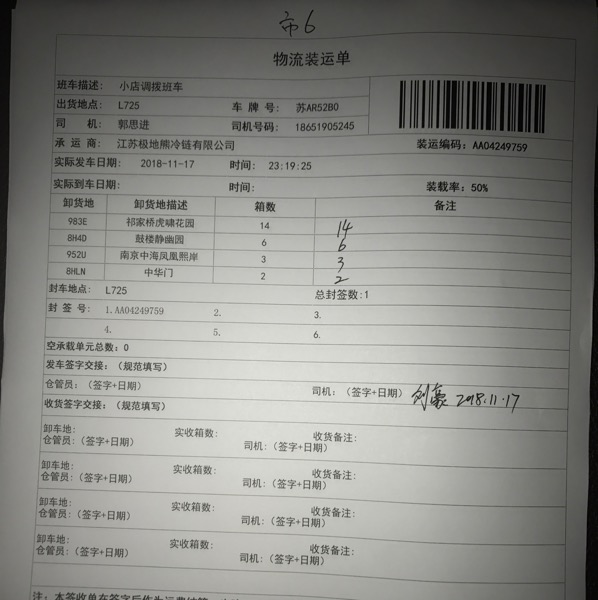 市6
物流装运单
班车描述: 小店调拨班车
出货地点: L725 车 牌 号: 苏AR52B0
司 机: 郭思进 司机号码: 18651905245
承 运 商: 江苏极地熊冷链有限公司 装运编码: AA04249759
实际发车日期: 2018-11-17 时间: 23:19:25
实际到车日期: 时间: 装载率: 50%
卸货地 卸货地描述 箱数 备注
983E 祁家桥虎啸花园 14 14
8H4D 鼓楼静幽园 6 6
952U 南京中海凤凰熙岸 3 3
8HLN 中华门 2 2
封车地点: L725 总封签数:1
封 签 号: 1.AA04249759 2. 3.
4. 5. 6.
空承载单元总数: 0
发车签字交接:（规范填写）
仓管员:（签字+日期） 司机:（签字+日期） 2018.11.17
收货签字交接:（规范填写）
卸车地: 实收箱数: 收货备注:
仓管员:（签字+日期） 司机:（签字+日期）
卸车地: 实收箱数: 收货备注:
仓管员:（签字+日期） 司机:（签字+日期）
卸车地: 实收箱数: 收货备注:
仓管员:（签字+日期） 司机:（签字+日期）
卸车地: 实收箱数: 收货备注:
仓管员:（签字+日期） 司机:（签字+日期）
注: 本签收单在签字后作为运费结算